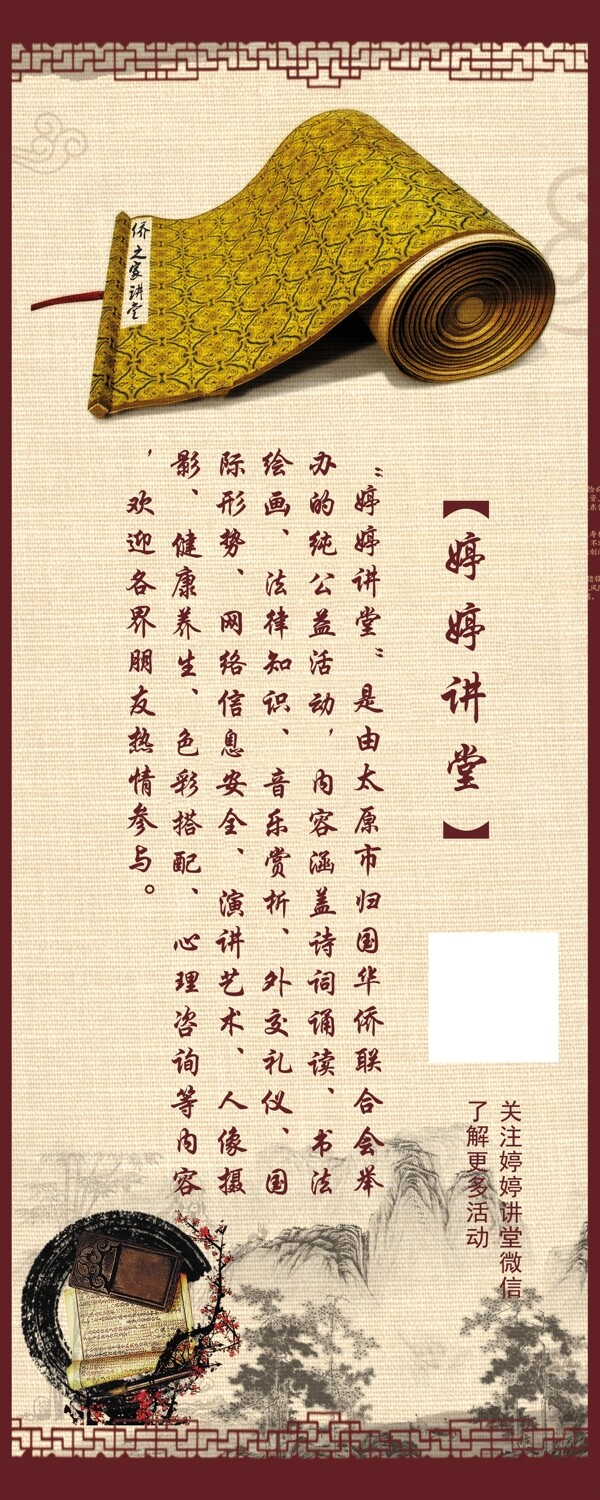 侨之家讲堂
【婷婷讲堂】
“婷婷讲堂”是由太原市归国华侨联合会举
办的纯公益活动，内容涵盖诗词诵读、书法
绘画、法律知识、音乐赏析、外交礼仪、国
际形势、网络信息安全、演讲艺术、人像摄
影、健康养生、色彩搭配、心理咨询等内容
，欢迎各界朋友热情参与。
关注婷婷讲堂微信
了解更多活动